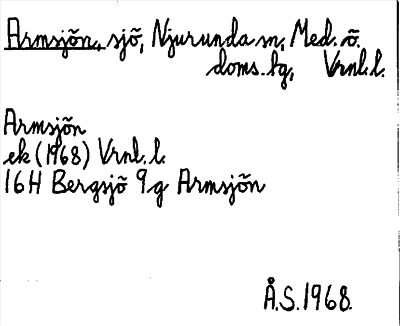 Armsjön, sjö, Njurunda sn, Med. ö.
doms. hg, Vrnl. l.
Armsjön
ek (1968) Vrnl. l.
16H Bergsjö 9g Armsjön
Å.S. 1968.